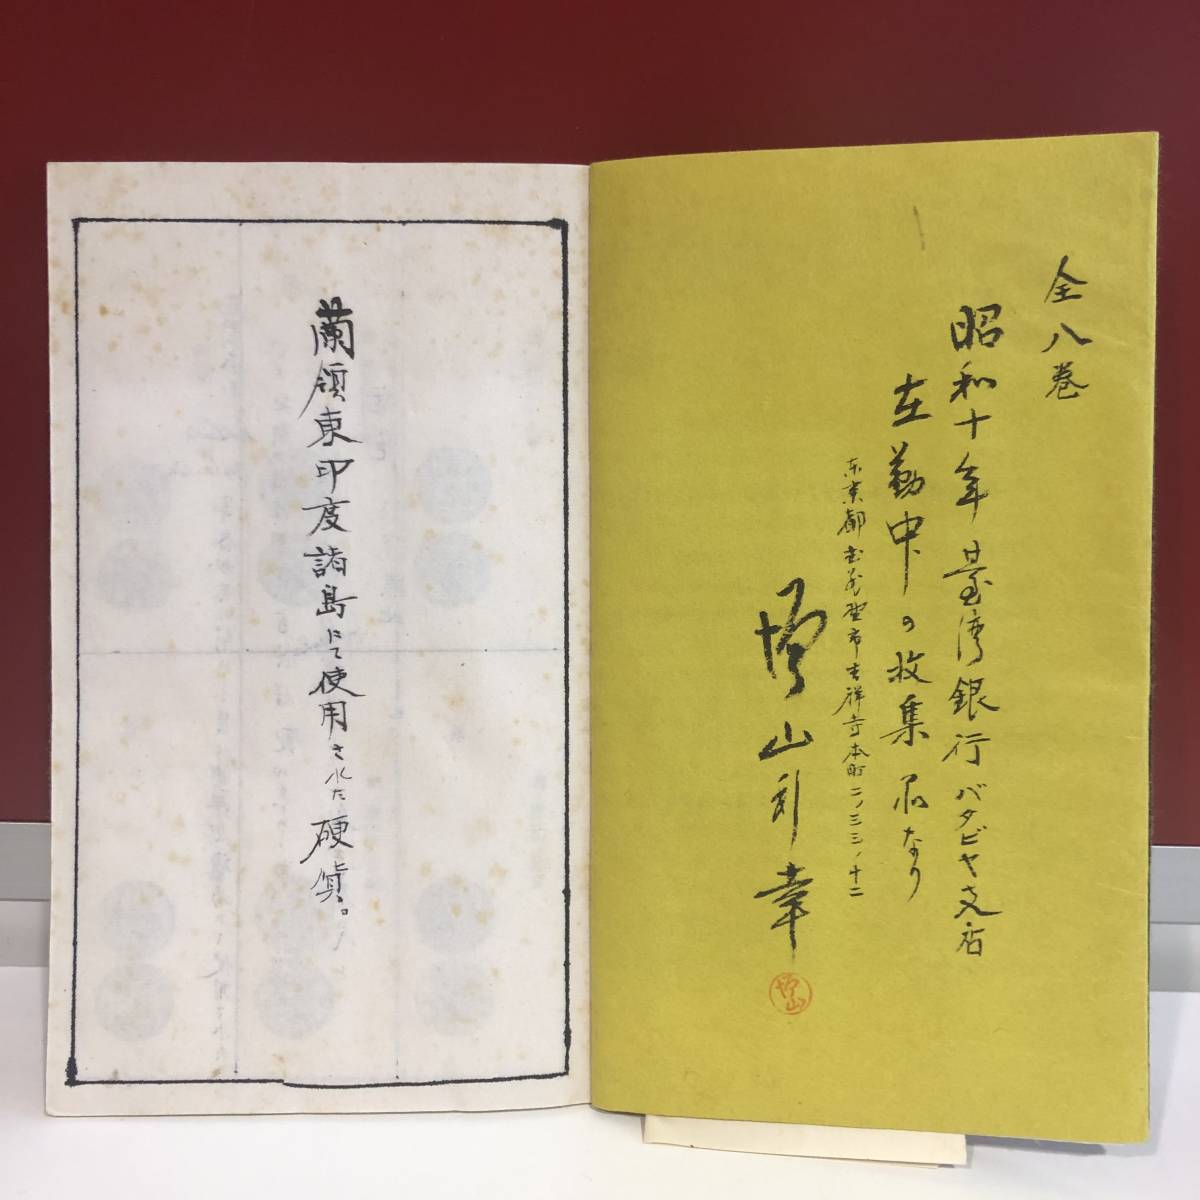 全八巻
昭和十年臺湾銀行バタビヤ支店
在勤中の收集品なり
东京都武蔵野市吉祥寺本町二ノ三三ノ十二
増山利幸
増山
蘭領東印度諸島にて使用された硬貨。